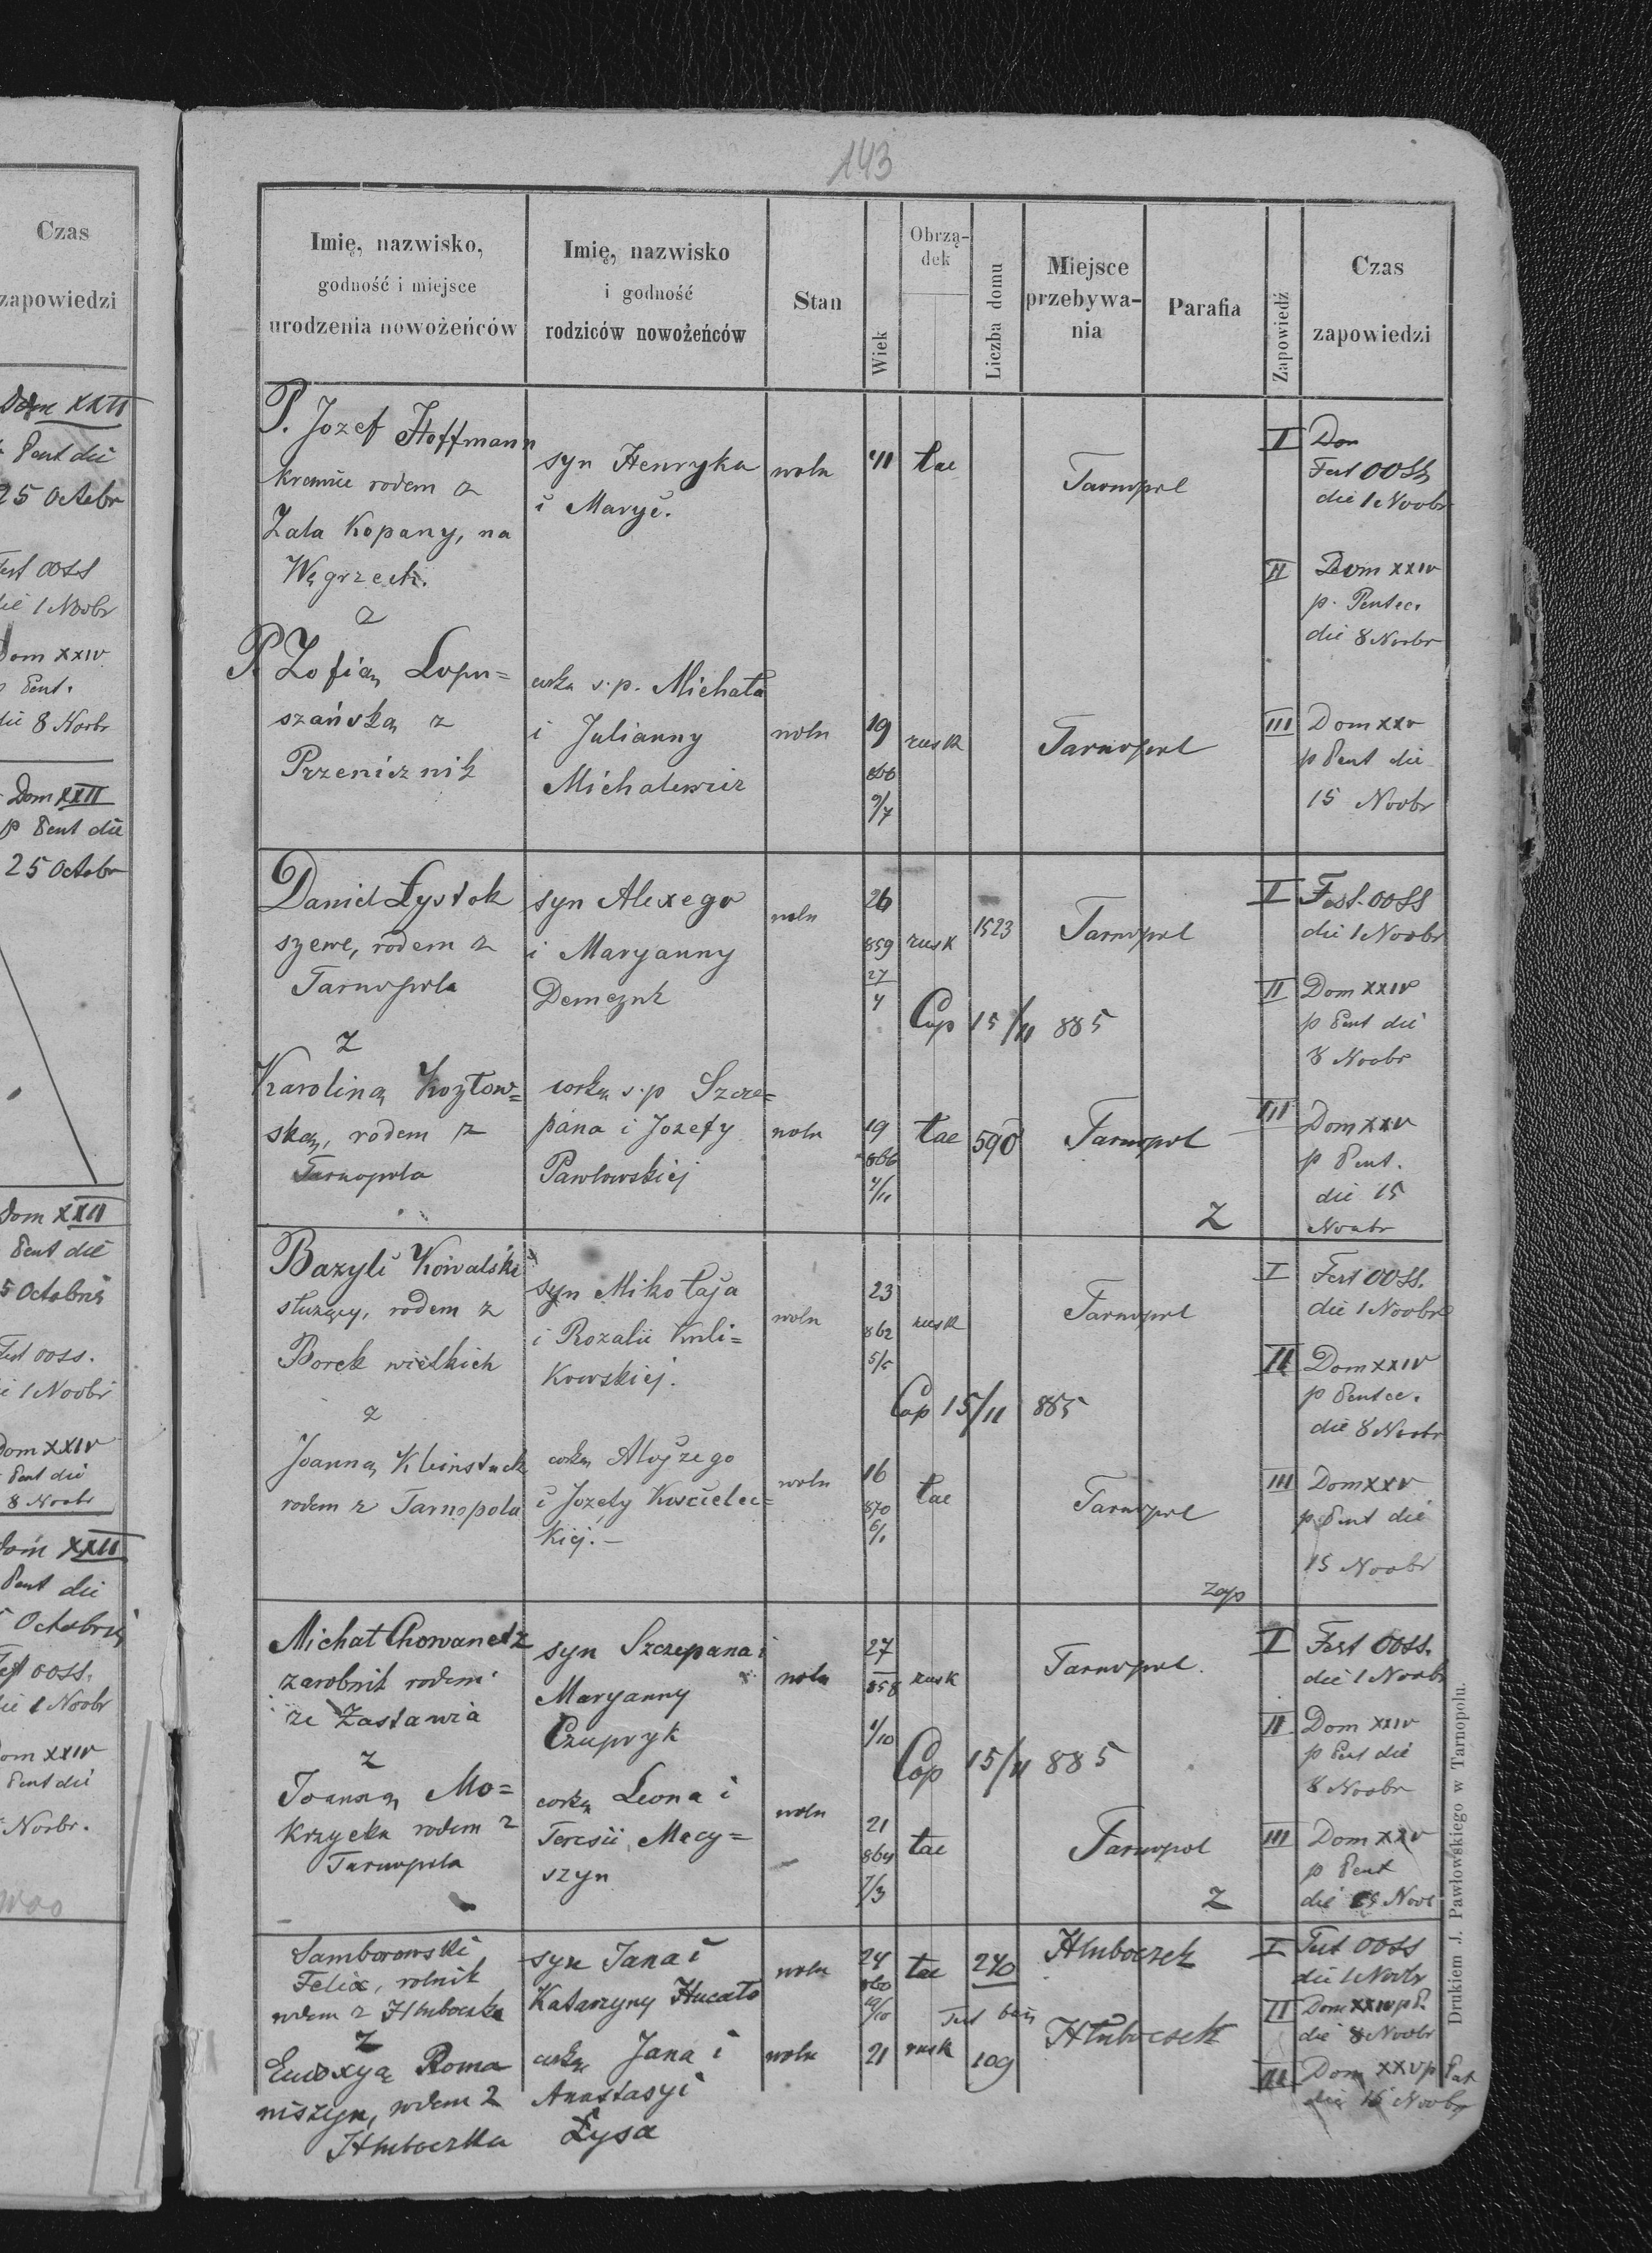 Czas
zapowiedzi
Dom XXII
Pent die
25 Octobr
Fest OOSS
die 1 Noobr
Dom XXIV
p Pent.
die 8 Noobr
Dom XXII
p Pent die
25 Octobr
Dom XXII
Pent die
5 Octobris
Fest OOSS.
die 1 Noobr
Dom XXIV
Pent die
8 Noobr
Dom XXII
Pent die
Octobris
Fest OOSS.
die 1 Noobr
Dom XXIV
Pent die
Noobr.
143
Imię, nazwisko,
godność i miejsce
urodzenia nowożeńców
Imię, nazwisko
i godność
rodziców nowożeńców
Stan
Wiek
Obrzą-
dek
Liczba domu
Miejsce
przebywa-
nia
Parafia
Zapowiedź
Czas
zapowiedzi
P. Jozef Hoffmann
rodem z
Zala Kopany, na
Węgrzech.
z
P. Zofią Łopu=
szańską z
Przenicznik
syn Henryka
i Maryi.
corką s.p. Michała
i Julianny
Michalewicz
woln
41
łac
Tarnopol
woln
19
866
9/7
rusk
Tarnopol
I
Dom
Fest OOSS
die 1 Noobr
II
Dom XXIV
p. Pentec.
die 8 Noobr
III
Dom XXV
p Pent die
15 Noobr
Daniel Łystok
szewc, rodem z
Tarnopola
z
Karoliną Kozłow=
ską, rodem z
Tarnopola
syn Alexego
i Maryanny
Demczuk
corką s.p Szcze=
pana i Jozefy
Pawłowskiej
woln
26
859
27
4
rusk
1523
Tarnopol
Cop 15/11 885
woln
19
866
4/11
łac
590
Tarnopol
Z
I
Fest. OOSS
die 1 Noobr
II
Dom XXIV
p Pent die
8 Noobr
III
Dom XXV
p Pent.
die 15
Noobr
Bazyli Kowalski
służący, rodem z
Borek wielkich
z
Joanną Kleinstuck
rodem z Tarnopola
syn Mikołaja
i Rozalii Kuli=
kowskiej.
corką Alojzego
i Jozefy Kościelec=
kiej.–
woln
23
862
5/5
rusk
Tarnopol
Cop 15/11 885
woln
16
870
6/1
łac
Tarnopol
zap
I
Fest OOSS.
die 1 Noobr
II
Dom XXIV
p Pentec.
die 8 Noobr
III
Dom XXV
p Pent die
15 Noobr
Michał Chowanetz
zarobnik rodem
ze Zastawia
z
Joanną Mo=
krzycka rodem z
Tarnopola
syn Szczepana i
Maryanny
Czupryk
corką Leona i
Teresii Macy=
szyn
woln
27
858
1/10
rusk
Tarnopol.
Cop 15/11 885
woln
21
864
7/3
łac
Tarnopol
Z
I
Fest OOSS.
die 1 Noobr
II
Dom XXIV
p Pent die
8 Noobr
III
Dom XXV
p Pent
die 15 Noobr
Samborowski
Felix, rolnik
rodem z Hluboczka
z
Eudoxyą Roma
niszyn, rodem z
Hluboczka
syn Jana i
Katarzyny Hucało
corką Jana i
Anastasyi
Łysa
woln
24
860
10/10
łac
270
Hluboczek
woln
21
rusk
109
Hluboczek
I
Fest OOSS
die 1 Noobr
II
Dom XXIV p P.
die 8 Noobr
III
Dom XXV p Pent
die 15 Noobr
Drukiem J. Pawłowskiego w Tarnopolu.